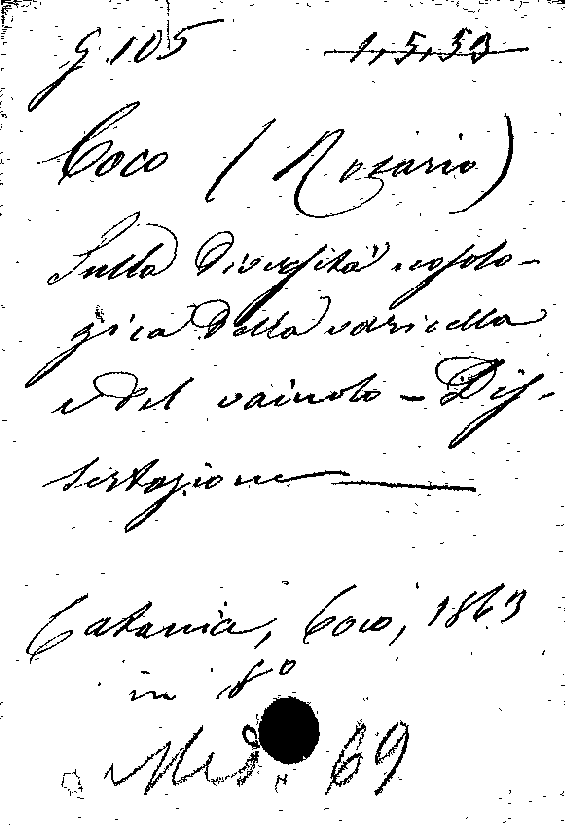 G 105 1,5,53
Coco (Rosario)
Sulla diversità nosolo-
gica della varicella
e del vaiuolo - Dis-
sertazione
Catania, Coco, 1863
in 8º
Med. 69